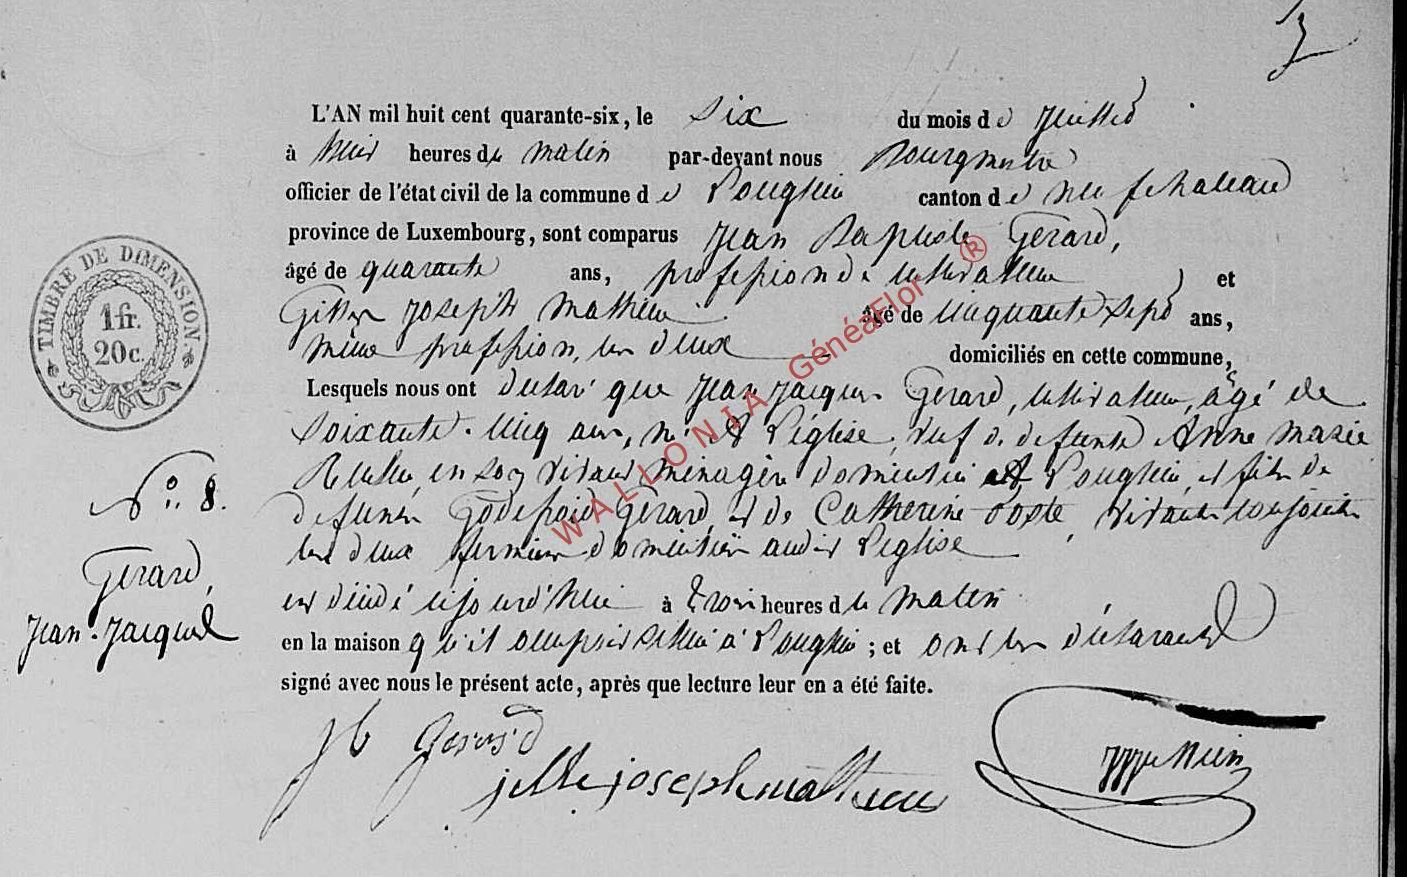 L'AN mil huit cent quarante-six, le six du mois de juillet
à huit heures du matin par-devant nous Bourgmestre
officier de l'état civil de la commune de Longlier canton de Neufchateau
province de Luxembourg, sont comparus Jean Baptiste Gérard,
âgé de quarante ans, profession de cultivateur et
Joseph Mathieu âgé de cinquante sept ans,
même profession, les deux domiciliés en cette commune,
Lesquels nous ont déclaré que Jean Jacques Gérard, cultivateur, âgé de
soixante-cinq ans, né à Léglise, veuf de défunte Anne Marie
en son vivant ménagère domicilié à Longlier, et fils de
défunts Godefroid Gérard et de Catherine vivants conjoints
les deux fermiers domiciliés audit Léglise
est décédé cejourd'hui à trois heures du matin
en la maison qu'il occupait à Longlier ; et ont les déclarants
signé avec nous le présent acte, après que lecture leur en a été faite.
TIMBRE DE DIMENSION.
1 fr.
20 c.
N° 8.
Gérard,
Jean-Jacques
J B Gerard
joseph mathieu
WALLONIA GénéaFlor ®